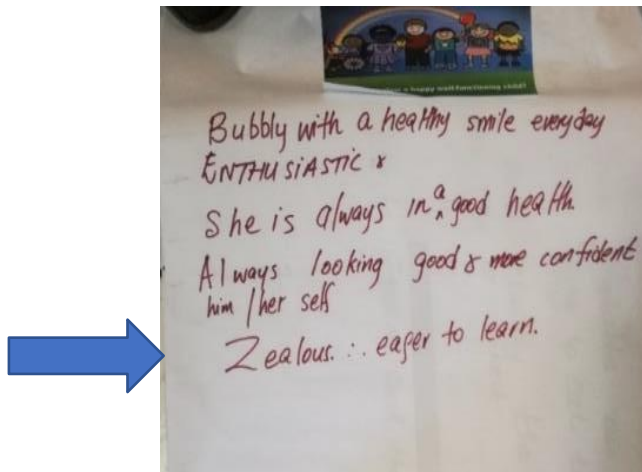 a happy well-functioning child?
Bubbly with a healthy smile everyday
ENTHUSIASTIC &
She is always in a good health.
Always looking good & more confident
him / her self
Zealous. ∴ eager to learn.